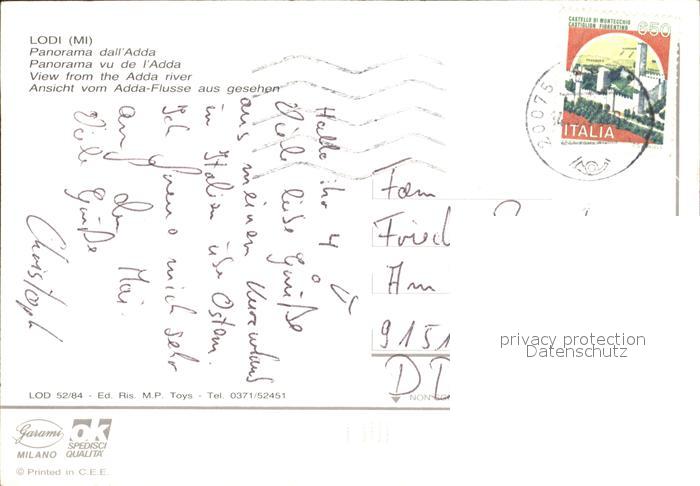 LODI (MI)
Panorama dall'Adda
Panorama vu de l'Adda
View from the Adda river
Ansicht vom Adda-Flusse aus gesehen
CASTELLO DI MONTECCHIO
CASTIGLION FIORENTINO
650
ITALIA
20075
Hallo ihr 4
Viele liebe Grüße
aus meinem Kurzurlaub
in Italien über Ostern.
Ich freue mich sehr
auf den Mai.
Viele Grüße
Christoph
Fam
Fried
Am
9151
privacy protection
Datenschutz
LOD 52/84 - Ed. Ris. M.P. Toys - Tel. 0371/52451
Garami
MILANO
ok
SPEDISCI
QUALITÀ
© Printed in C.E.E.